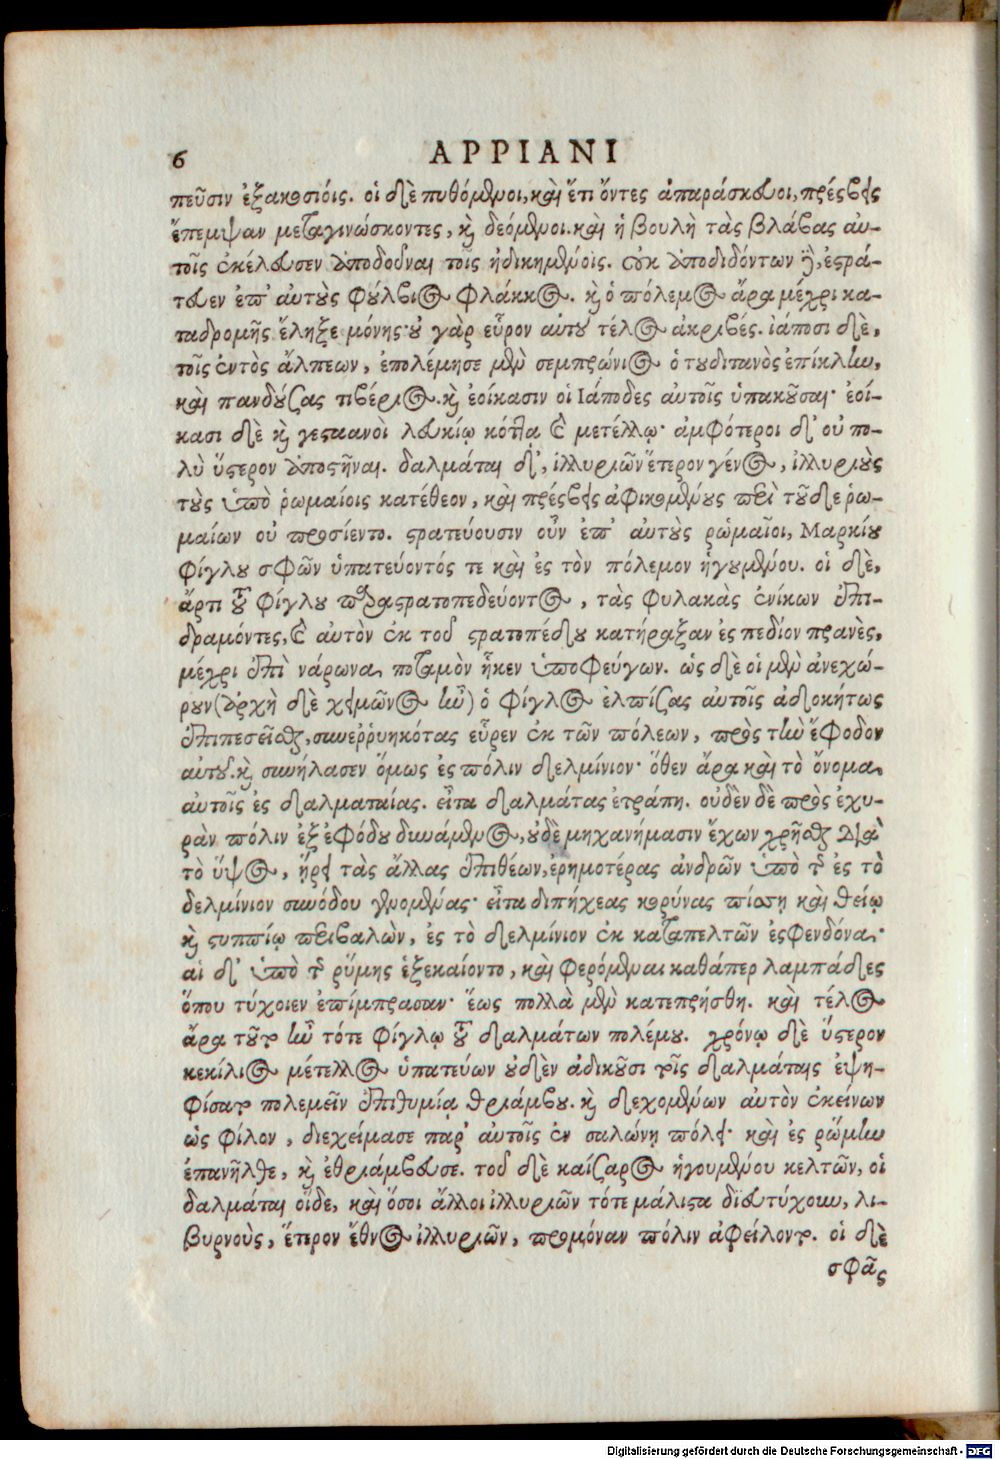 6 APPIANI
πεῦσιν ἑξακοσίοις. οἱ δὲ πυθόμενοι, καὶ ἔτι ὄντες ἀπαράσκευοι, πρέσβεις
ἔπεμψαν μεταγινώσκοντες, καὶ δεόμενοι. καὶ ἡ βουλὴ τὰς βλάβας αὐ-
τοῖς ἐκέλευσεν ἀποδοῦναι τοῖς ἠδικημένοις. οὐκ ἀποδιδόντων δὲ, ἐστρά-
τευεν ἐπ' αὐτοὺς φούλβιος φλάκκος. καὶ ὁ πόλεμος ἄρα μέχρι κα-
ταδρομῆς ἔληξε μόνης· οὐ γὰρ εὗρον αὐτοῦ τέλος ἀκριβές. ἰάποσι δὲ,
τοῖς ἐντὸς ἄλπεων, ἐπολέμησε μὲν σεμπρώνιος ὁ τουδιτανὸς ἐπίκλην,
καὶ πανδούζας τιβέριος. καὶ ἐοίκασιν οἱ Ιάποδες αὐτοῖς ὑπακοῦσαι· ἐοί-
κασι δὲ καὶ γεστανοὶ λευκίῳ κόττᾳ καὶ μετέλλῳ· ἀμφότεροι δ' οὐ πο-
λὺ ὕστερον ἀποστῆναι. δαλμάται δ', ἰλλυριῶν ἕτερον γένος, ἰλλυριοὺς
τοὺς ὑπὸ ῥωμαίοις κατέθεον, καὶ πρέσβεις ἀφικομένους περὶ τοῦδε ῥω-
μαίων οὐ προσίεντο. στρατεύουσιν οὖν ἐπ' αὐτοὺς ῥωμαῖοι, Μαρκίου
φίγλου σφῶν ὑπατεύοντός τε καὶ ἐς τὸν πόλεμον ἡγουμένου. οἱ δὲ,
ἄρτι τοῦ φίγλου παραστρατοπεδεύοντος, τὰς φυλακὰς ἐνίκων ἐπι-
δραμόντες, καὶ αὐτὸν ἐκ τοῦ στρατοπέδου κατήραξαν ἐς πεδίον πρανὲς,
μέχρι ἐπὶ νάρωνα ποταμὸν ἧκεν ὑποφεύγων. ὡς δὲ οἱ μὲν ἀνεχώ-
ρουν (ἀρχὴ δὲ χειμῶνος ἦν) ὁ φίγλος ἐλπίζας αὐτοῖς ἀδοκήτως
ἐπιπεσεῖσθαι, συνερρυηκότας εὗρεν ἐκ τῶν πόλεων, πρὸς τὴν ἔφοδον
αὐτοῦ. καὶ συνήλασεν ὅμως ἐς πόλιν δελμίνιον· ὅθεν ἄρα καὶ τὸ ὄνομα
αὐτοῖς ἐς δαλματαίας. εἶτα δαλμάτας ἐτράπη. οὐδὲν δὲ πρὸς ἐχυ-
ρὰν πόλιν ἐξ ἐφόδου δυνάμενος, οὐδὲ μηχανήμασιν ἔχων χρῆσθαι διὰ
τὸ ὕψος, ᾕρει τὰς ἄλλας ἐπιθέων, ἐρημοτέρας ἀνδρῶν ὑπὸ τῆς ἐς τὸ
δελμίνιον συνόδου γενομένας· εἶτα διπήχεας κορύνας πίσσῃ καὶ θείῳ
καὶ στυππίῳ περιβαλὼν, ἐς τὸ δελμίνιον ἐκ καταπελτῶν ἐσφενδόνα·
αἱ δ' ὑπὸ τῆς ῥύμης ἐξεκαίοντο, καὶ φερόμεναι καθάπερ λαμπάδες
ὅπου τύχοιεν ἐπίμπρασαν· ἕως πολλὰ μὲν κατεπρήσθη. καὶ τέλος
ἄρα τοῦτο ἦν τότε φίγλῳ τοῦ δαλμάτων πολέμου. χρόνῳ δὲ ὕστερον
κεκίλιος μέτελλος ὑπατεύων οὐδὲν ἀδικοῦσι τοῖς δαλμάταις ἐψη-
φίσατο πολεμεῖν ἐπιθυμίᾳ θριάμβου. καὶ δεχομένων αὐτὸν ἐκείνων
ὡς φίλον, διεχείμασε παρ' αὐτοῖς ἐν σαλώνῃ πόλει· καὶ ἐς ῥώμην
ἐπανῆλθε, καὶ ἐθριάμβευσε. τοῦ δὲ καίζαρος ἡγουμένου κελτῶν, οἱ
δαλμάται οἵδε, καὶ ὅσοι ἄλλοι ἰλλυριῶν τότε μάλιστα διευτύχουν, λι-
βυρνοὺς, ἕτερον ἔθνος ἰλλυριῶν, προμόναν πόλιν ἀφείλοντο. οἱ δὲ
σφᾶς
Digitalisierung gefördert durch die Deutsche Forschungsgemeinschaft - DFG